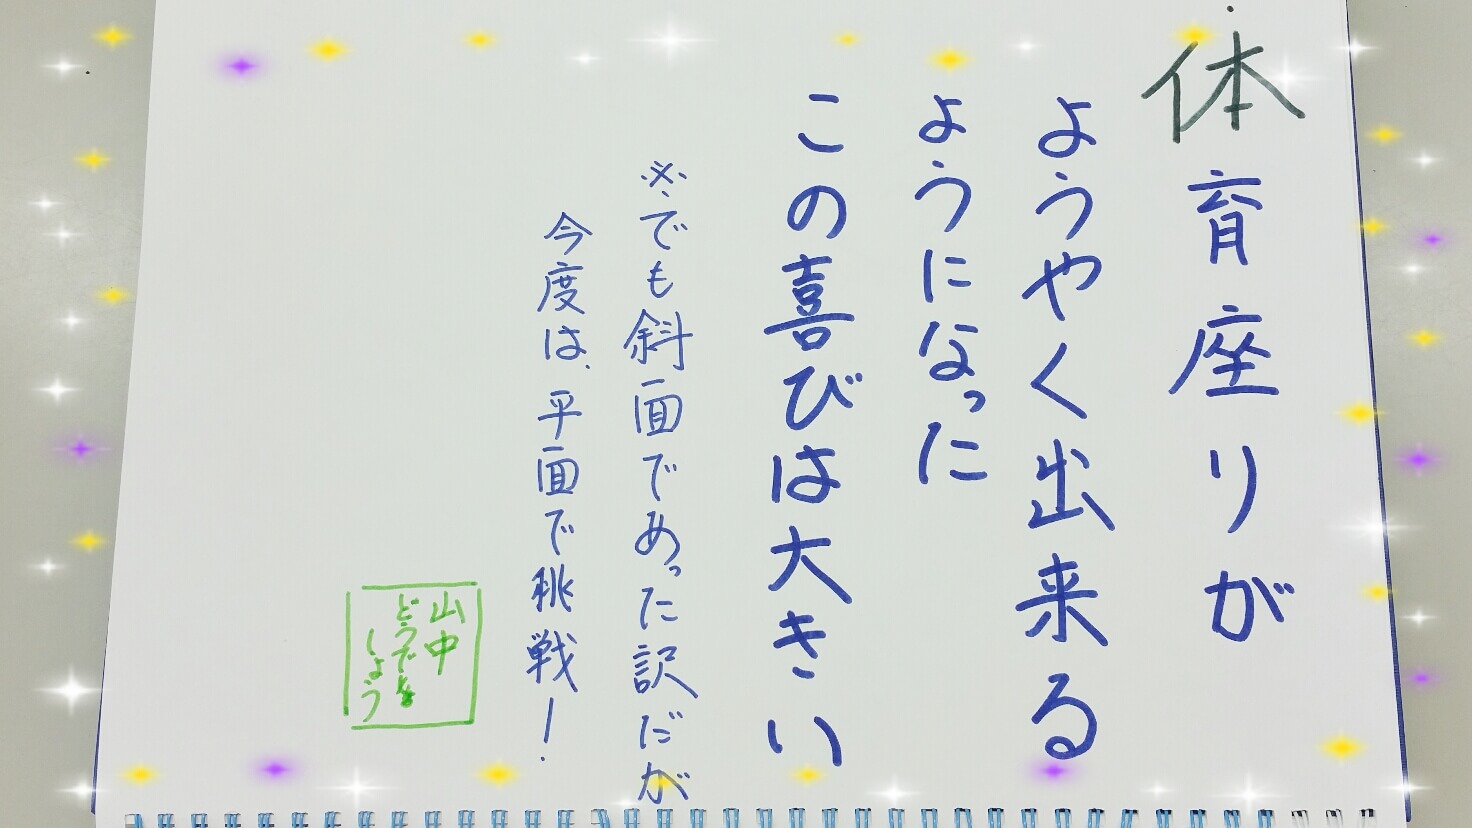 体育座りが
ようやく出来る
ようになった
この喜びは大きい
※でも斜面であった訳だが
今度は、平面で挑戦!
山中
どうでも
しょう